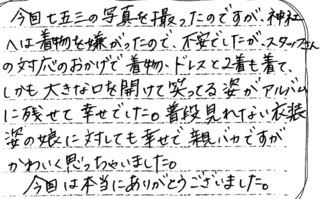 今回七五三の写真を撮ったのですが、神社
へは着物を嫌がったので、不安でしたが、スタッフさん
の対応のおかげで着物、ドレスと2着も着て、
しかも大きな口を開けて笑ってる姿がアルバム
に残せて幸せでした。普段見れない衣装
姿の娘に対しても幸せで親バカですが
かわいく思っちゃいました。
今回は本当にありがとうございました。